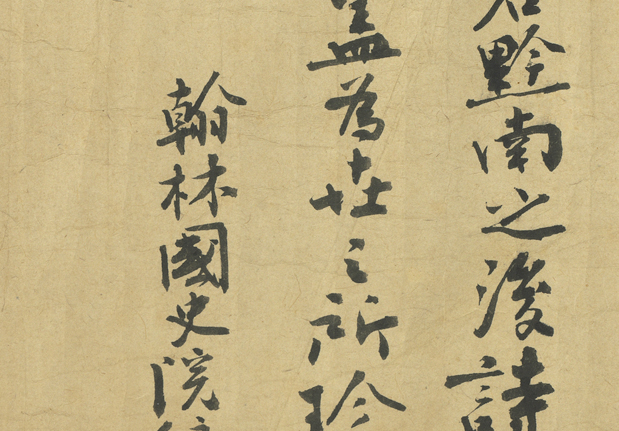 黔南之後詩
蓋為世之所珍
翰林國史院